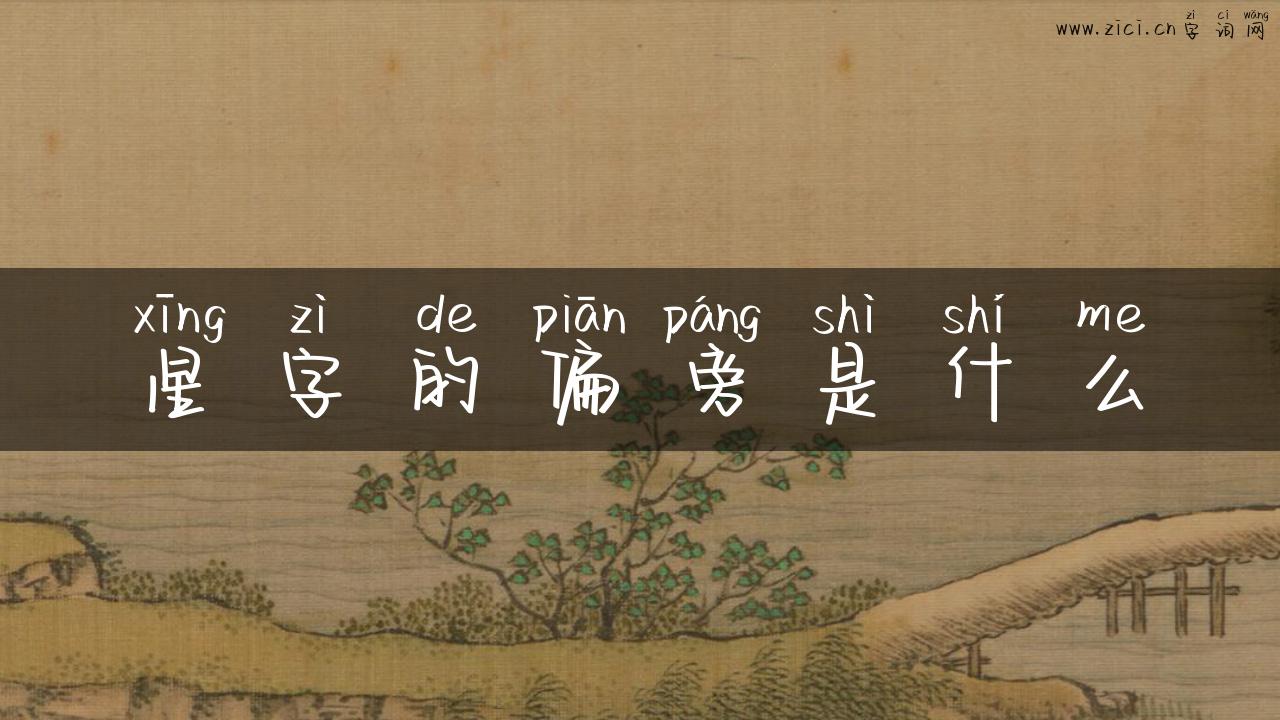 zì cí wǎng
www.zici.cn 字 词 网
xīng zì de piān páng shì shí me
星 字 的 偏 旁 是 什 么